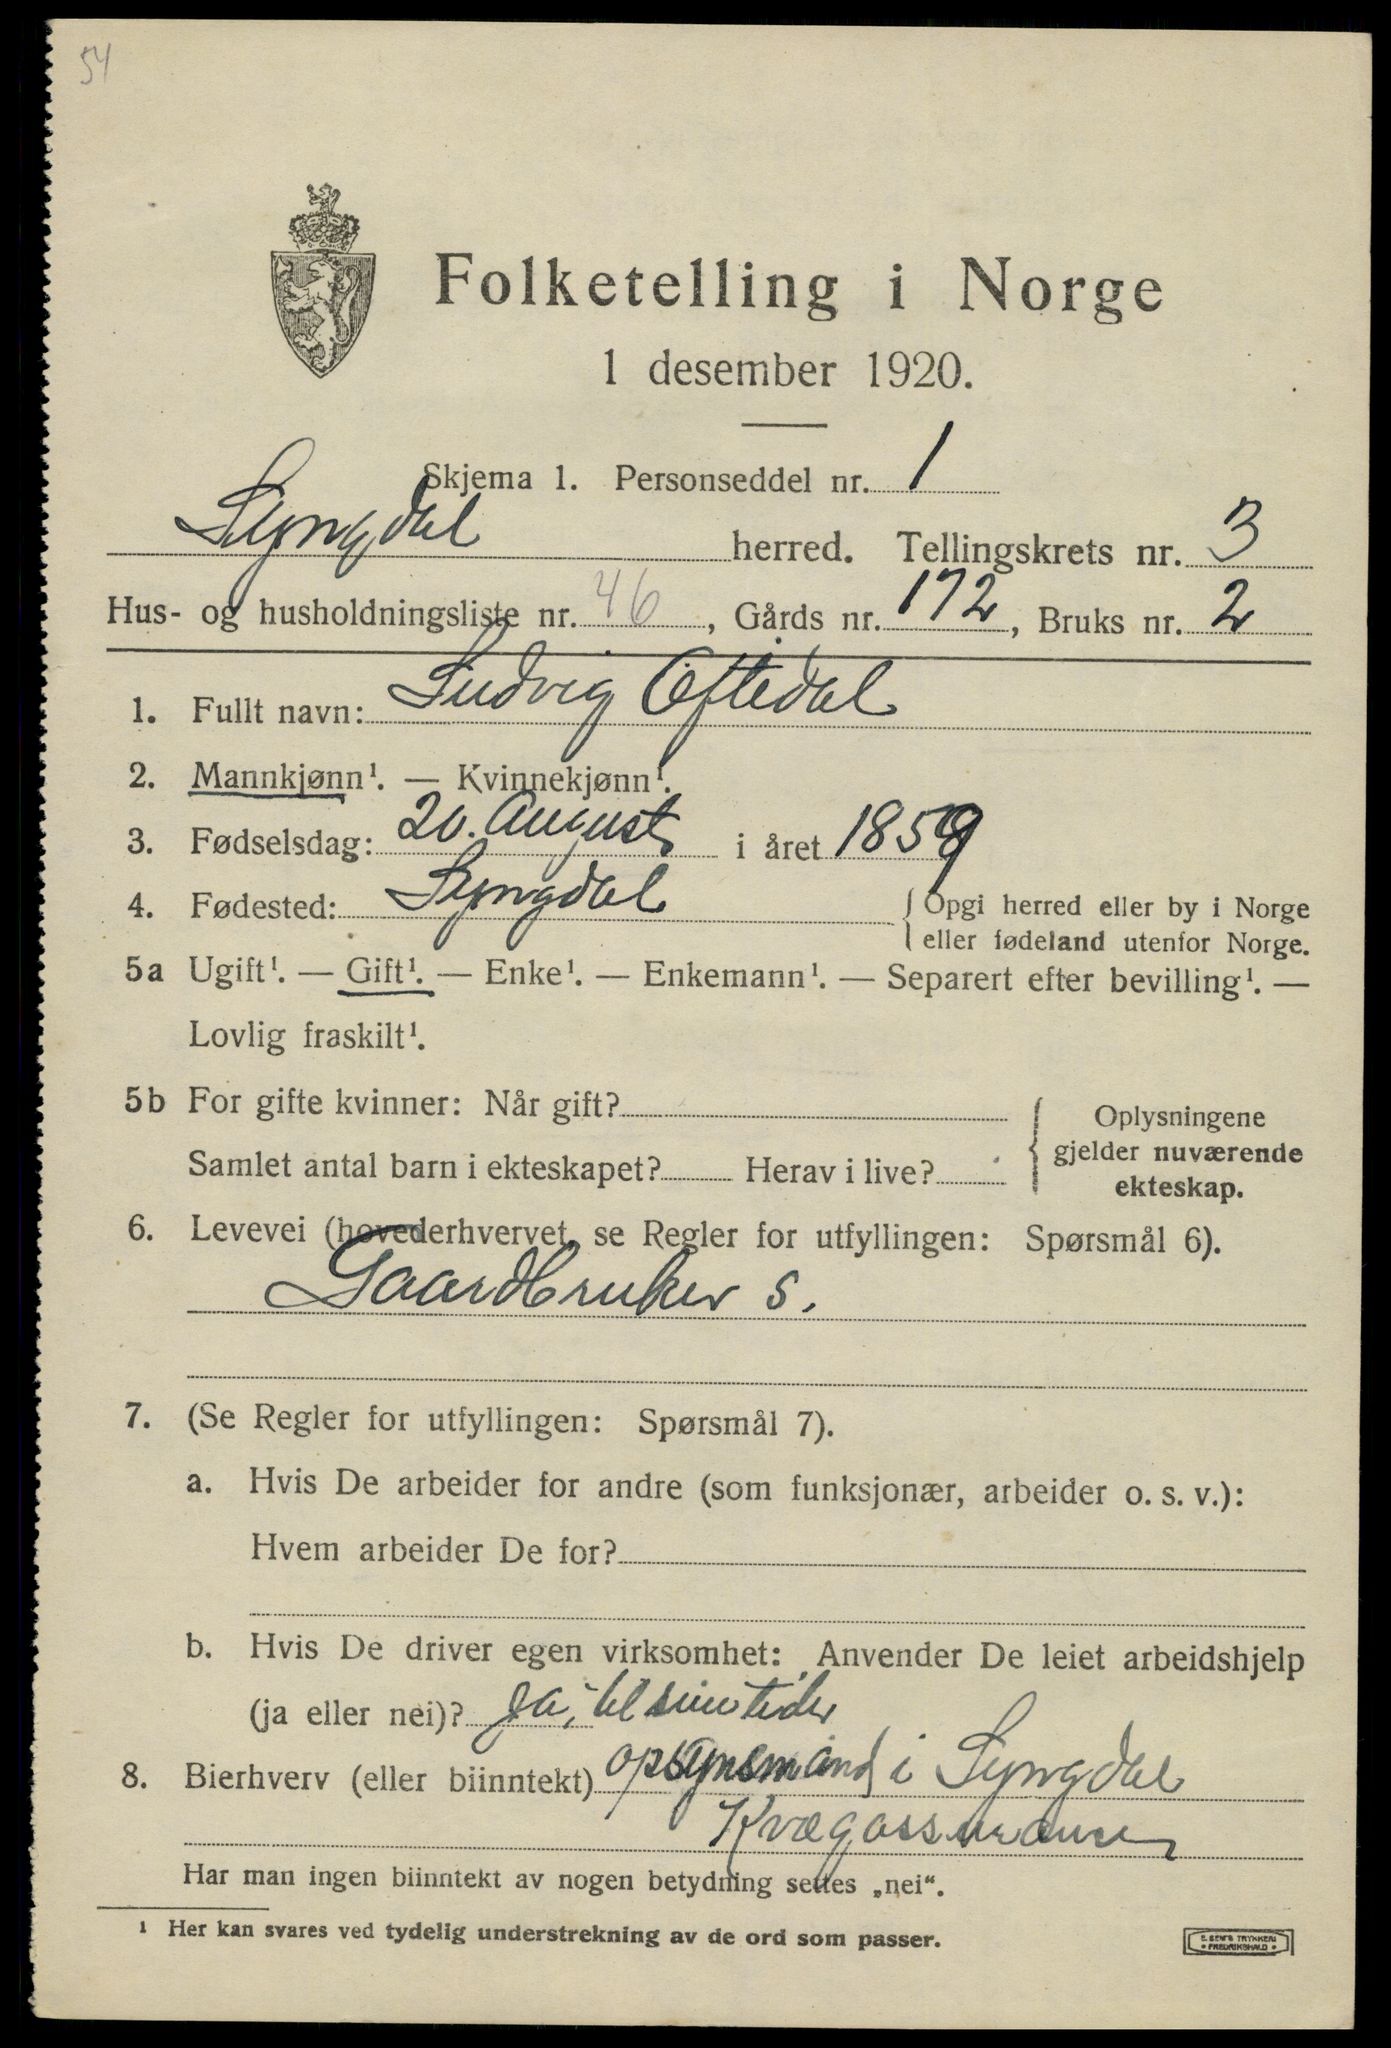 54
Folketelling i Norge
1 desember 1920.
Skjema 1. Personseddel nr. 1
Lyngdal herred. Tellingskrets nr. 3
Hus- og husholdningsliste nr. 46, Gårds nr. 172, Bruks nr. 2
1. Fullt navn: Ludvig Oftedal
2. Mannkjønn¹. — Kvinnekjønn¹.
3. Fødselsdag: 20. August i året 1859
4. Fødested: Lyngdal { Opgi herred eller by i Norge
eller fødeland utenfor Norge.
5a Ugift¹. — Gift¹. — Enke¹. — Enkemann¹. — Separert efter bevilling¹. —
Lovlig fraskilt¹.
5b For gifte kvinner: Når gift?
Samlet antal barn i ekteskapet? Herav i live?
{ Oplysningene
gjelder nuværende
ekteskap.
6. Levevei (hovederhvervet, se Regler for utfyllingen: Spørsmål 6).
Gaardbruker s.
7. (Se Regler for utfyllingen: Spørsmål 7).
a. Hvis De arbeider for andre (som funksjonær, arbeider o. s. v.):
Hvem arbeider De for?
b. Hvis De driver egen virksomhet: Anvender De leiet arbeidshjelp
(ja eller nei)? Ja, til sine tider
8. Bierhverv (eller biinntekt) opsynsmand i Lyngdal
Har man ingen biinntekt av nogen betydning settes „nei“.
¹ Her kan svares ved tydelig understrekning av de ord som passer.
E. SEM'S TRYKKERI
• FREDRIKSHALD •